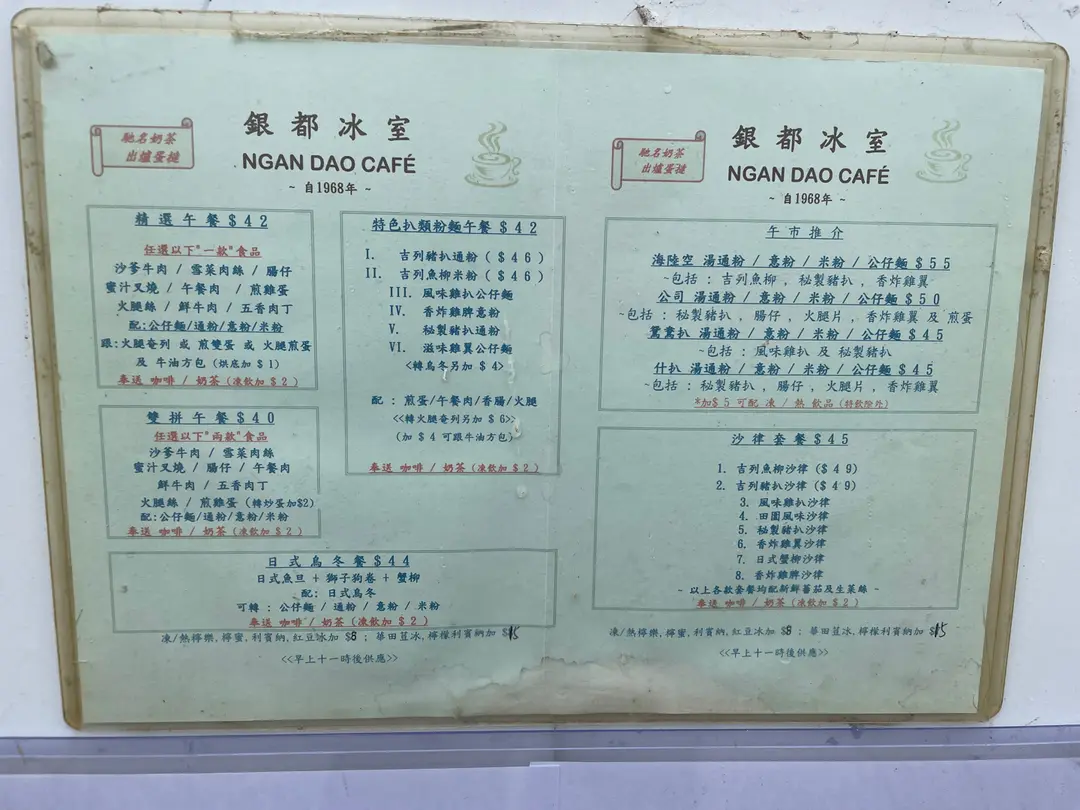 馳名奶茶
出爐蛋撻
銀都冰室
NGAN DAO CAFÉ
~ 自1968年 ~
精選午餐$42
任選以下"一款"食品
沙爹牛肉 / 雪菜肉絲 / 腸仔
蜜汁叉燒 / 午餐肉 / 煎雞蛋
火腿絲 / 鮮牛肉 / 五香肉丁
配:公仔麵/通粉/意粉/米粉
跟:火腿奄列 或 煎雙蛋 或 火腿煎蛋
及 牛油方包 (烘底加 $1)
奉送 咖啡 / 奶茶 (凍飲加 $2)
雙拼午餐$40
任選以下"兩款"食品
沙爹牛肉 / 雪菜肉絲
蜜汁叉燒 / 腸仔 / 午餐肉
鮮牛肉 / 五香肉丁
火腿絲 / 煎雞蛋 (轉炒蛋加$2)
配:公仔麵/通粉/意粉/米粉
奉送 咖啡 / 奶茶 (凍飲加 $2)
特色扒類粉麵午餐$42
I. 吉列豬扒通粉 ($46)
II. 吉列魚柳米粉 ($46)
III. 風味雞扒公仔麵
IV. 香炸雞脾意粉
V. 秘製豬扒通粉
VI. 滋味雞翼公仔麵
<轉烏冬另加 $4>
配 : 煎蛋/午餐肉/香腸/火腿
<<轉火腿奄列另加 $6>>
(加 $4 可跟牛油方包)
奉送 咖啡 / 奶茶 (凍飲加 $2)
日式烏冬餐$44
日式魚旦 + 獅子狗卷 + 蟹柳
配: 日式烏冬
可轉 : 公仔麵 / 通粉 / 意粉 / 米粉
奉送 咖啡 / 奶茶 (凍飲加 $2)
凍/熱檸樂,檸蜜,利賓納,紅豆冰加 $8 ; 華田荳冰,檸檬利賓納加 $15
<<早上十一時後供應>>
馳名奶茶
出爐蛋撻
銀都冰室
NGAN DAO CAFÉ
~ 自1968年 ~
午市推介
海陸空 湯通粉 / 意粉 / 米粉 / 公仔麵 $55
~包括 : 吉列魚柳 , 秘製豬扒 , 香炸雞翼
公司 湯通粉 / 意粉 / 米粉 / 公仔麵 $50
~包括 : 秘製豬扒 , 腸仔 , 火腿片 , 香炸雞翼 及 煎蛋
鴛鴦扒 湯通粉 / 意粉 / 米粉 / 公仔麵 $45
~包括 : 風味雞扒 及 秘製豬扒
什扒 湯通粉 / 意粉 / 米粉 / 公仔麵 $45
~包括 : 秘製豬扒 , 腸仔 , 火腿片 , 香炸雞翼
*加$5 可配 凍 / 熱 飲品 (特飲除外)
沙律套餐$45
1. 吉列魚柳沙律 ($49)
2. 吉列豬扒沙律 ($49)
3. 風味雞扒沙律
4. 田園風味沙律
5. 秘製豬扒沙律
6. 香炸雞翼沙律
7. 日式蟹柳沙律
8. 香炸雞脾沙律
~ 以上各款套餐均配新鮮蕃茄及生菜絲 ~
奉送 咖啡 / 奶茶 (凍飲加 $2)
凍/熱檸樂,檸蜜,利賓納,紅豆冰加 $8 ; 華田荳冰,檸檬利賓納加 $15
<<早上十一時後供應>>